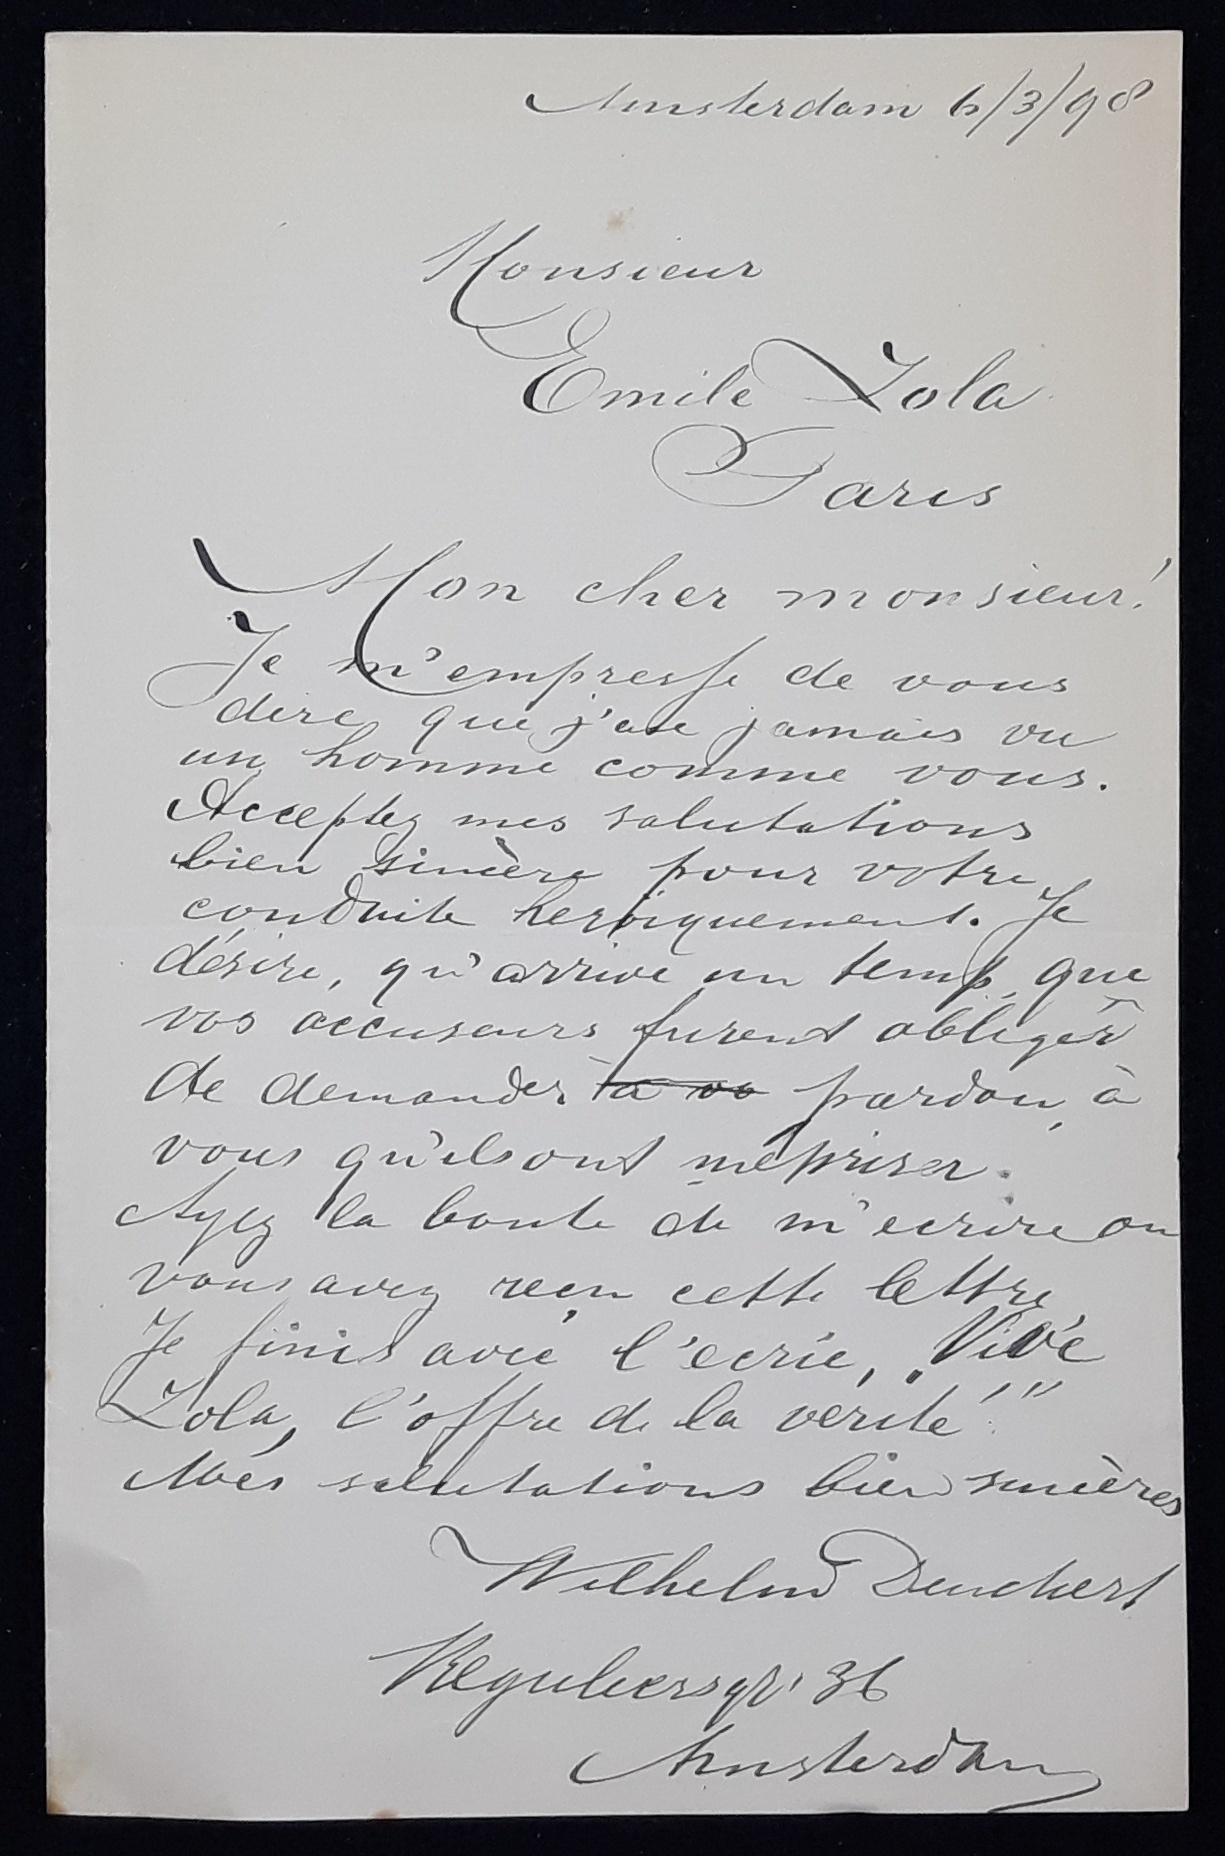 Amsterdam 6/3/98
Monsieur
Emile Zola
Paris
Mon cher monsieur!
Je m'empresse de vous
dire, que j'aie jamais vu
un homme comme vous.
Acceptez mes salutations
bien sincère pour votre
conduite heroiquement. Je
désire, qu'arrive un temp, que
vos accuseurs furent obliger
de demander à vo pardon, à
vous qu'ils ont mépriser.
Ayez la bonte de m'ecrire ou
vous avez reçu cette lettre.
Je finis avec l'ecrie, „Vive
Zola, l'offre de la verité!"
Mes salutations bien sincères
Wilhelm Deuchert
Reguliersgr. 36
Amsterdam